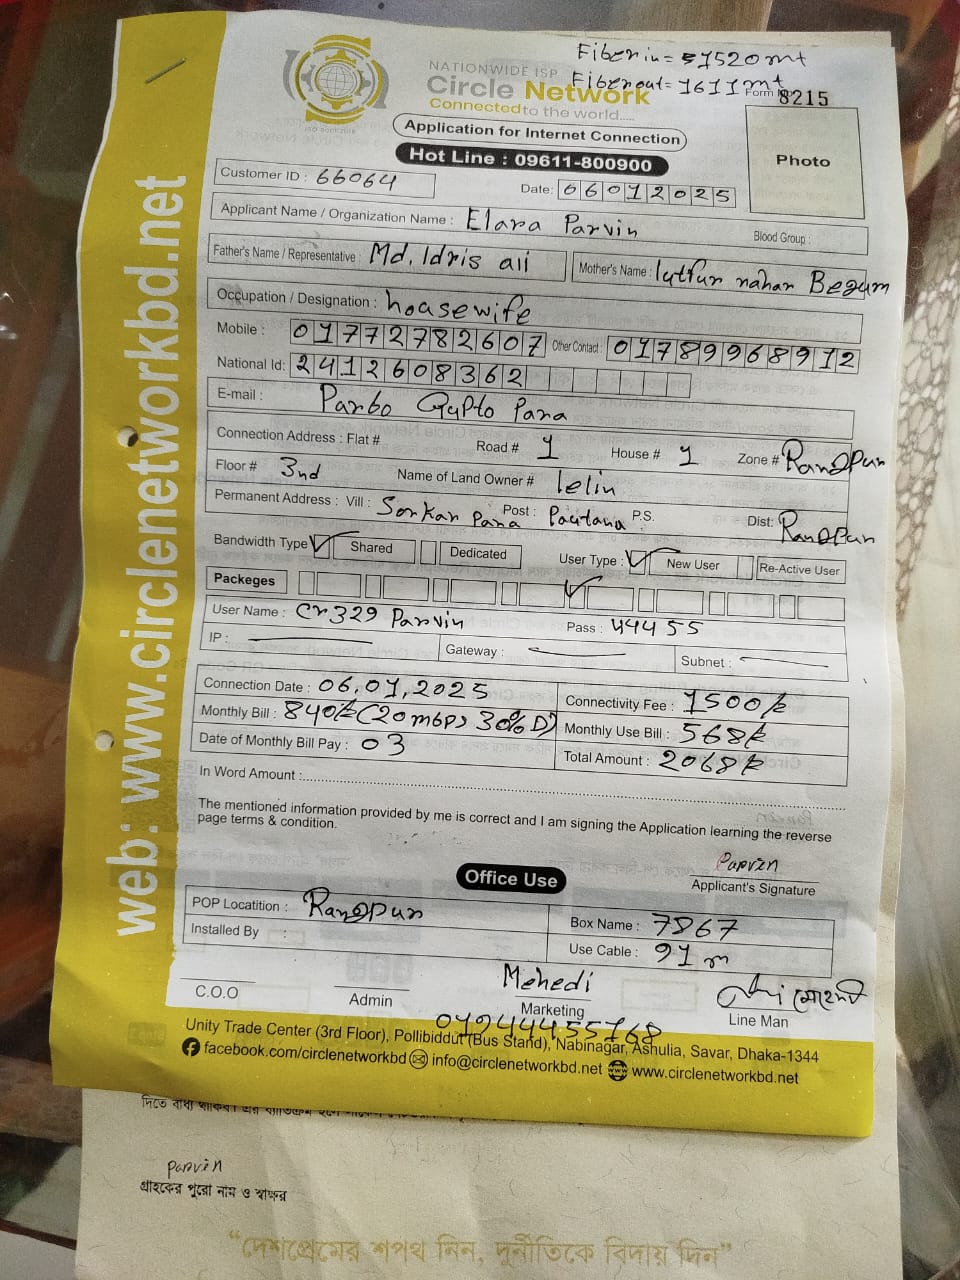 Fiber in = 57520 mt
Fiber out = 1611 mt
NATIONWIDE ISP
Circle Network
Connected to the world.....
ISO 9001:2015
Form 8215
Application for Internet Connection
Hot Line : 09611-800900
Photo
Customer ID : 66064
Date: 06012025
Applicant Name / Organization Name : Elara Parvin
Blood Group :
Father's Name / Representative : Md. Idris ali
Mother's Name : lutfun nahar Begum
Occupation / Designation : housewife
Mobile : 01772782607 Other Contact : 01789968912
National Id: 2412608362
E-mail : Parbo Gupto Para
Connection Address : Flat # Road # 1 House # 1 Zone # Rangpur
Floor # 3nd Name of Land Owner # lelin
Permanent Address : Vill : Sorkar Para Post : Pavtana P.S. Dist: Rangpur
Bandwidth Type Shared Dedicated User Type : New User Re-Active User
Packeges
User Name : cr329 Parvin Pass : 44455
IP : Gateway : Subnet :
Connection Date : 06,01,2025 Connectivity Fee : 1500/k
Monthly Bill : 840/k (20mbps 30% D) Monthly Use Bill : 568/k
Date of Monthly Bill Pay : 03 Total Amount : 2068/k
In Word Amount :
The mentioned information provided by me is correct and I am signing the Application learning the reverse
page terms & condition.
Parvin
Applicant's Signature
Office Use
POP Locatition : Rangpur Box Name : 7867
Installed By : Use Cable : 91 m
C.O.O
Admin
Mehedi
Marketing
01944455168
Line Man
Unity Trade Center (3rd Floor), Pollibiddut (Bus Stand), Nabinagar, Ashulia, Savar, Dhaka-1344
facebook.com/circlenetworkbd info@circlenetworkbd.net www.circlenetworkbd.net
web: www.circlenetworkbd.net
parvin
গ্রাহকের পুরো নাম ও স্বাক্ষর
“দেশপ্রেমের শপথ নিন, দুর্নীতিকে বিদায় দিন”